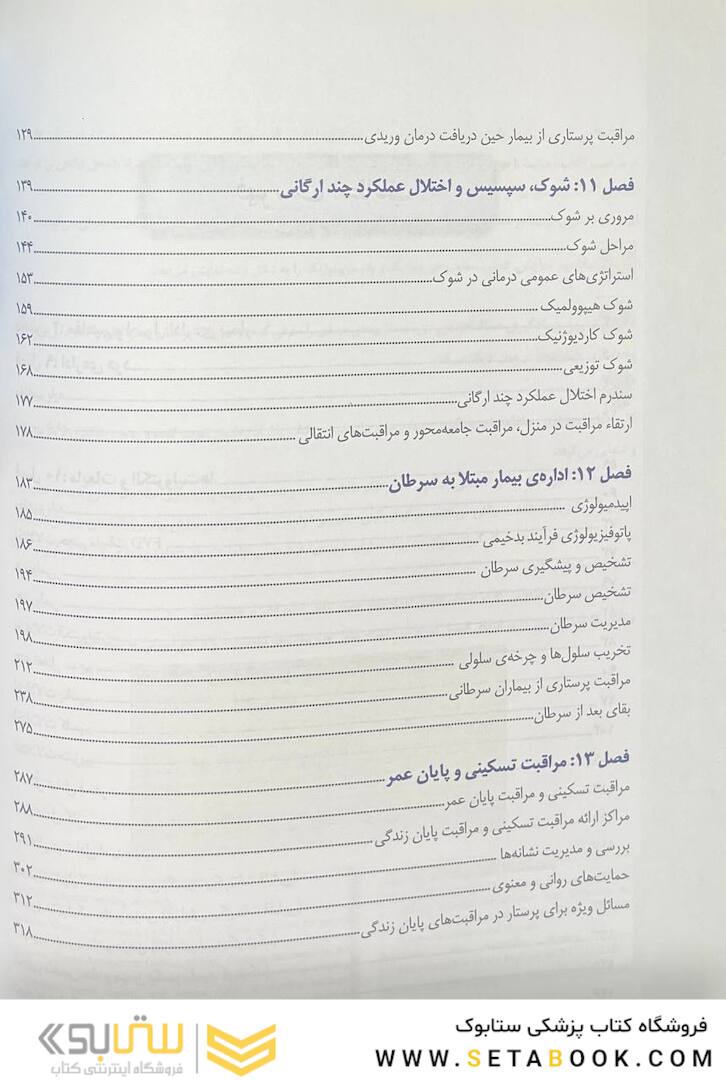 مراقبت پرستاری از بیمار حین دریافت درمان وریدی ۱۲۹
فصل ۱۱: شوک، سپسیس و اختلال عملکرد چند ارگانی ۱۳۹
مروری بر شوک ۱۴۰
مراحل شوک ۱۴۴
استراتژی‌های عمومی درمانی در شوک ۱۵۳
شوک هیپوولمیک ۱۵۹
شوک کاردیوژنیک ۱۶۲
شوک توزیعی ۱۶۸
سندرم اختلال عملکرد چند ارگانی ۱۷۷
ارتقاء مراقبت در منزل، مراقبت جامعه‌محور و مراقبت‌های انتقالی ۱۷۸
فصل ۱۲: اداره‌ی بیمار مبتلا به سرطان ۱۸۳
اپیدمیولوژی ۱۸۵
پاتوفیزیولوژی فرآیند بدخیمی ۱۸۶
تشخیص و پیشگیری سرطان ۱۹۴
تشخیص سرطان ۱۹۷
مدیریت سرطان ۱۹۸
تخریب سلول‌ها و چرخه‌ی سلولی ۲۱۲
مراقبت پرستاری از بیماران سرطانی ۲۳۸
بقای بعد از سرطان ۲۷۵
فصل ۱۳: مراقبت تسکینی و پایان عمر ۲۸۷
مراقبت تسکینی و مراقبت پایان عمر ۲۸۸
مراکز ارائه مراقبت تسکینی و مراقبت پایان زندگی ۲۹۱
بررسی و مدیریت نشانه‌ها ۳۰۲
حمایت‌های روانی و معنوی ۳۱۲
مسائل ویژه برای پرستار در مراقبت‌های پایان زندگی ۳۱۸
فروشگاه کتاب پزشکی ستابوک
WWW.SETABOOK.COM
ستابوک
فروشگاه اینترنتی کتاب